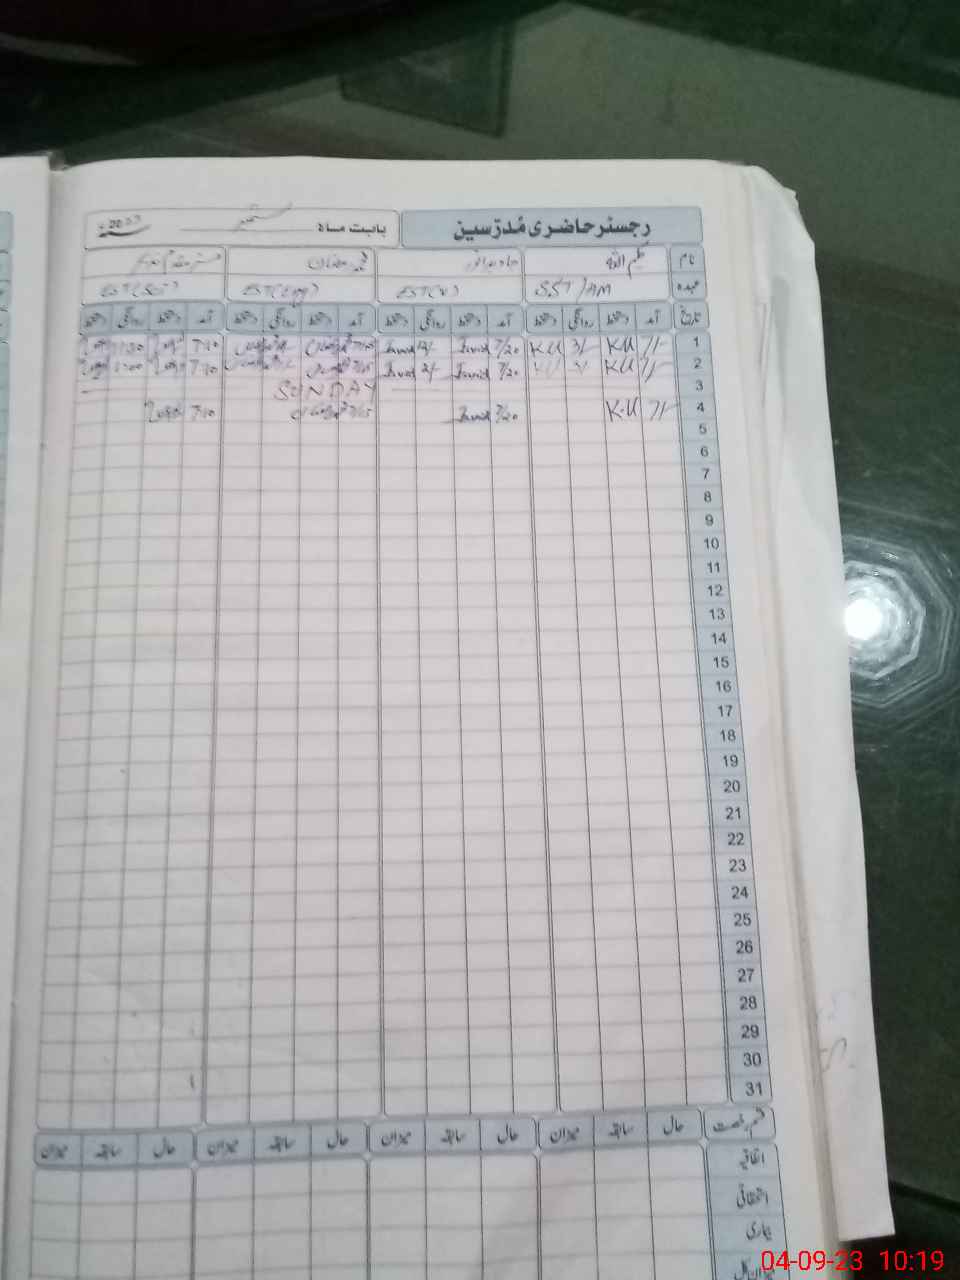 رجسٹر حاضری مُدرّسین بابت ماہ ستمبر 2023ء
نام کلیم اللہ جاوید انور محمد رمضان
عہدہ SST/AM EST(V) EST(Eng) EST(Sci)
تاریخ آمد دستخط روانگی دستخط آمد دستخط روانگی دستخط آمد دستخط روانگی دستخط آمد دستخط روانگی دستخط
1 7/- K.U K.U 7/20 Javid 12/- Javid 7/15 7:10
2 7/- K.U 7/20 Javid 2/- Javid 7/15 7:10
3 SUNDAY
4 7/- K.U 7/20 Javid 7/15 7:10
5
6
7
8
9
10
11
12
13
14
15
16
17
18
19
20
21
22
23
24
25
26
27
28
29
30
31
قسم رخصت حال سابقہ میزان حال سابقہ میزان حال سابقہ میزان حال سابقہ میزان
اتفاقیہ
استحقاقی
بیماری
میزان کل
04-09-23 10:19